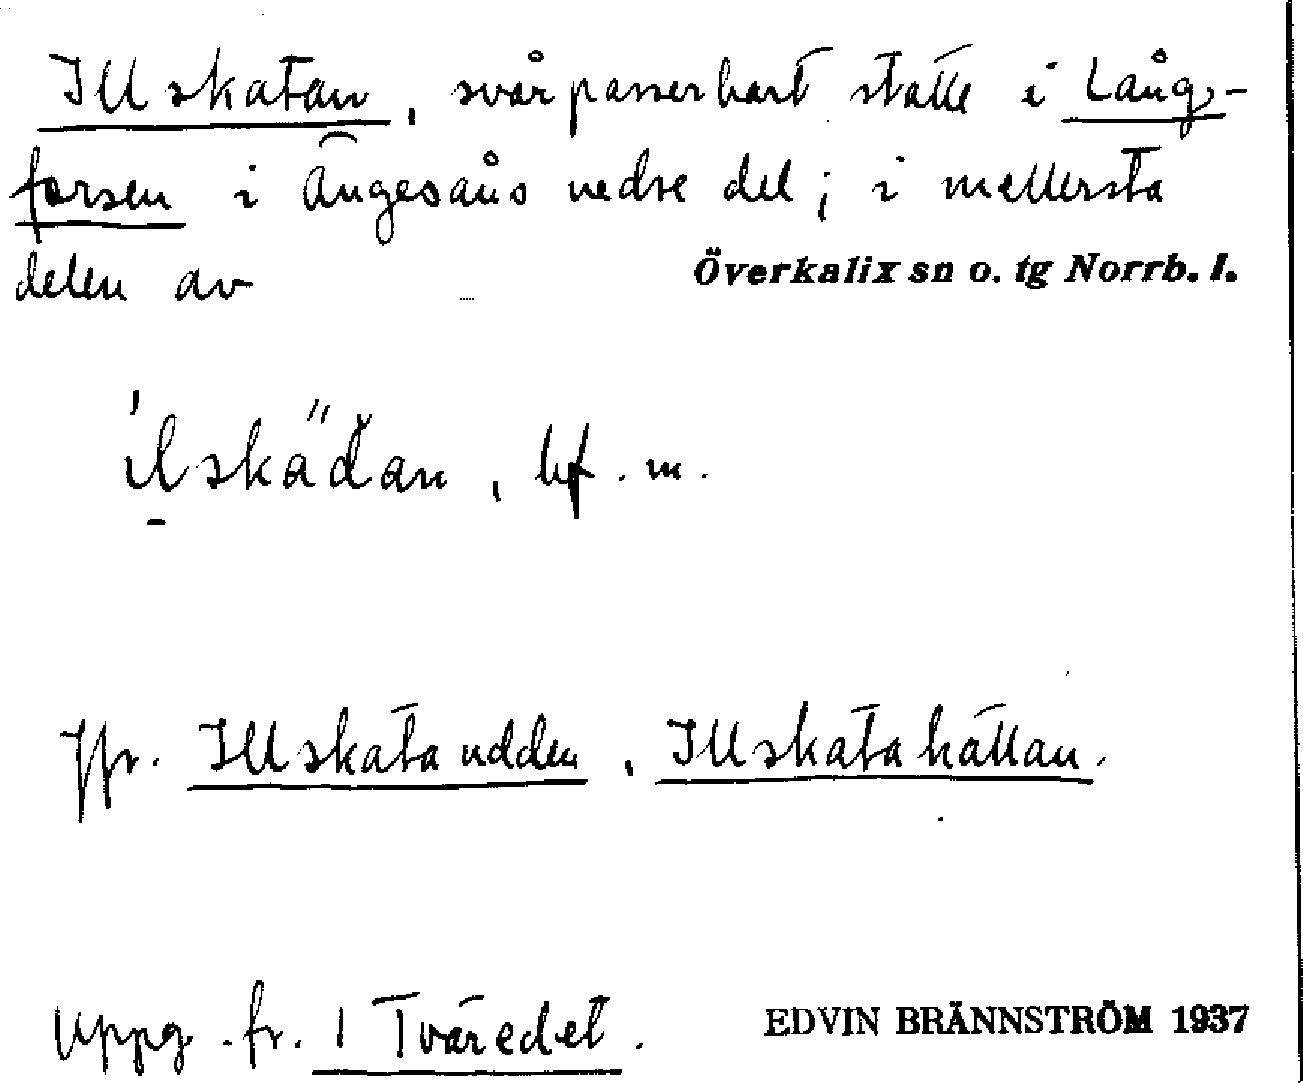 Illskatan, svårpasserbart ställe i Lång-
forsen i Ängesåns nedre del; i mellersta
delen av Överkalix sn o. tg Norrb. l.
bf. m.
Jfr. Illskataudden, Illskatahällan.
Uppg. fr. 1 Tväredet. EDVIN BRÄNNSTRÖM 1937